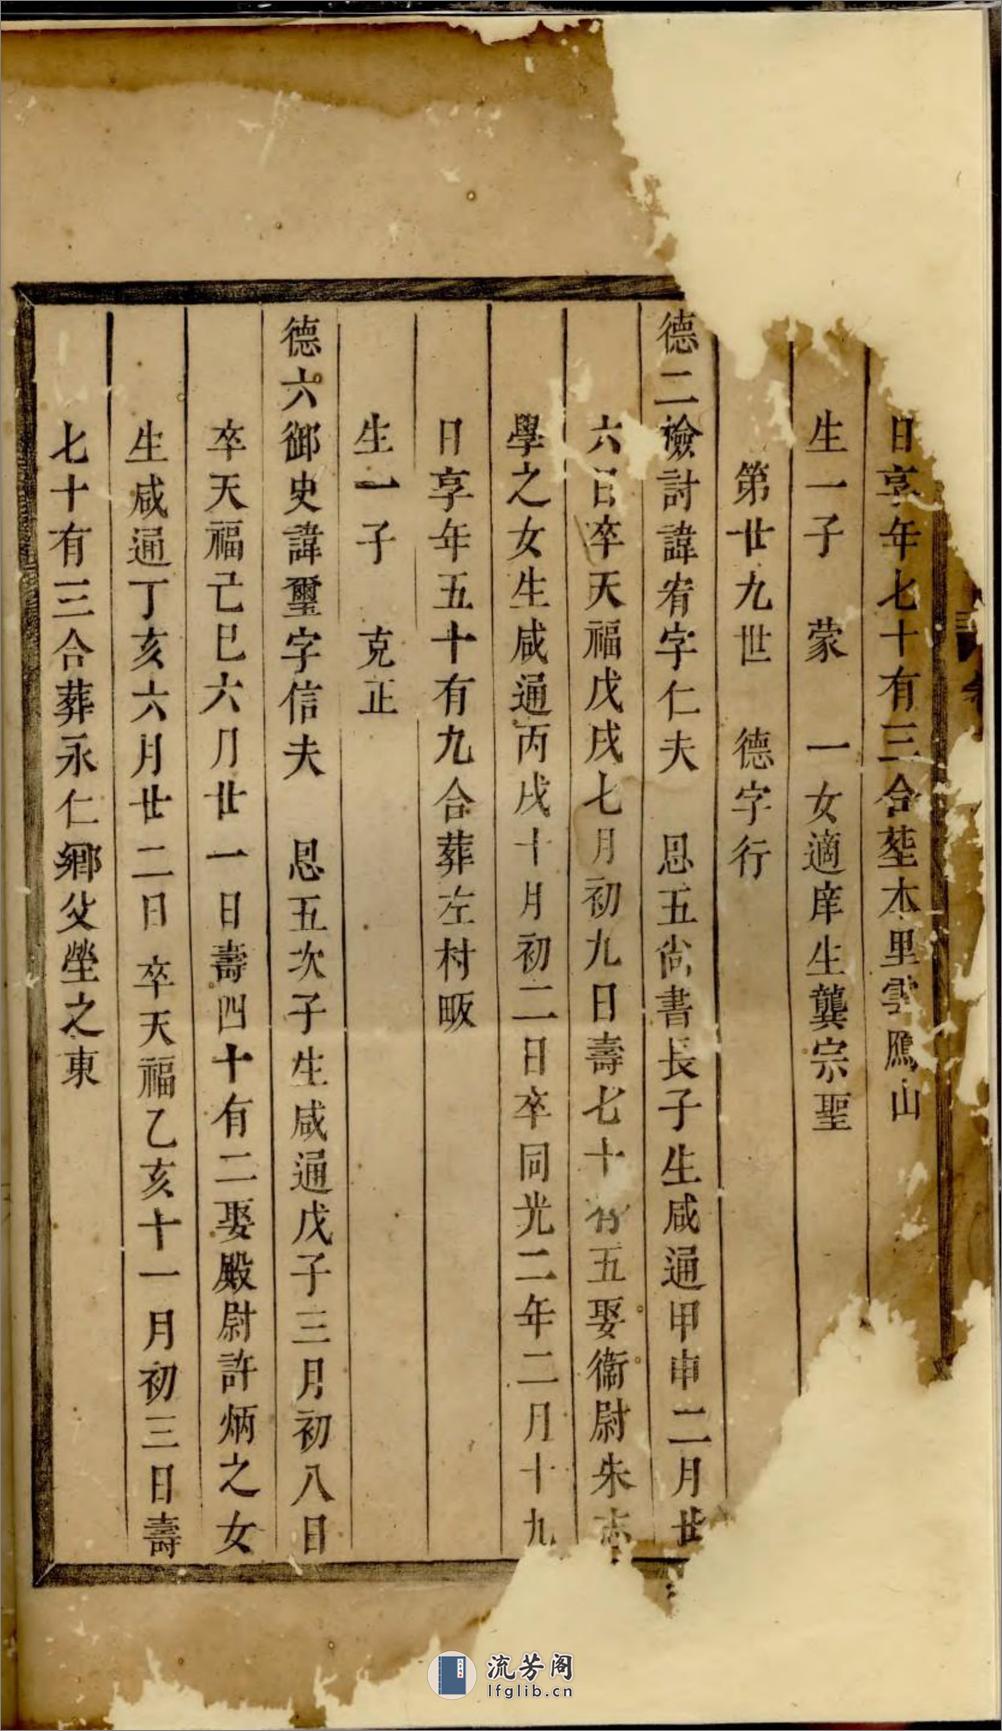 日享年七十有三合塟本里雲鴈山
生一子　蒙　一女適庠生龔宗聖
第廿九世　德字行
德二檢討諱宥字仁夫　思五尚書長子生咸通甲申二月廿
六日卒天福戊戌七月初九日壽七十有五娶衞尉朱志
學之女生咸通丙戌十月初二日卒同光二年二月十九
日享年五十有九合葬左村畈
生一子　克正
德六御史諱璽字信夫　思五次子生咸通戊子三月初八日
卒天福己巳六月廿一日壽四十有二娶殿尉許炳之女
生咸通丁亥六月廿二日卒天福乙亥十一月初三日壽
七十有三合葬永仁鄉父塋之東
流芳阁
lfglib.cn